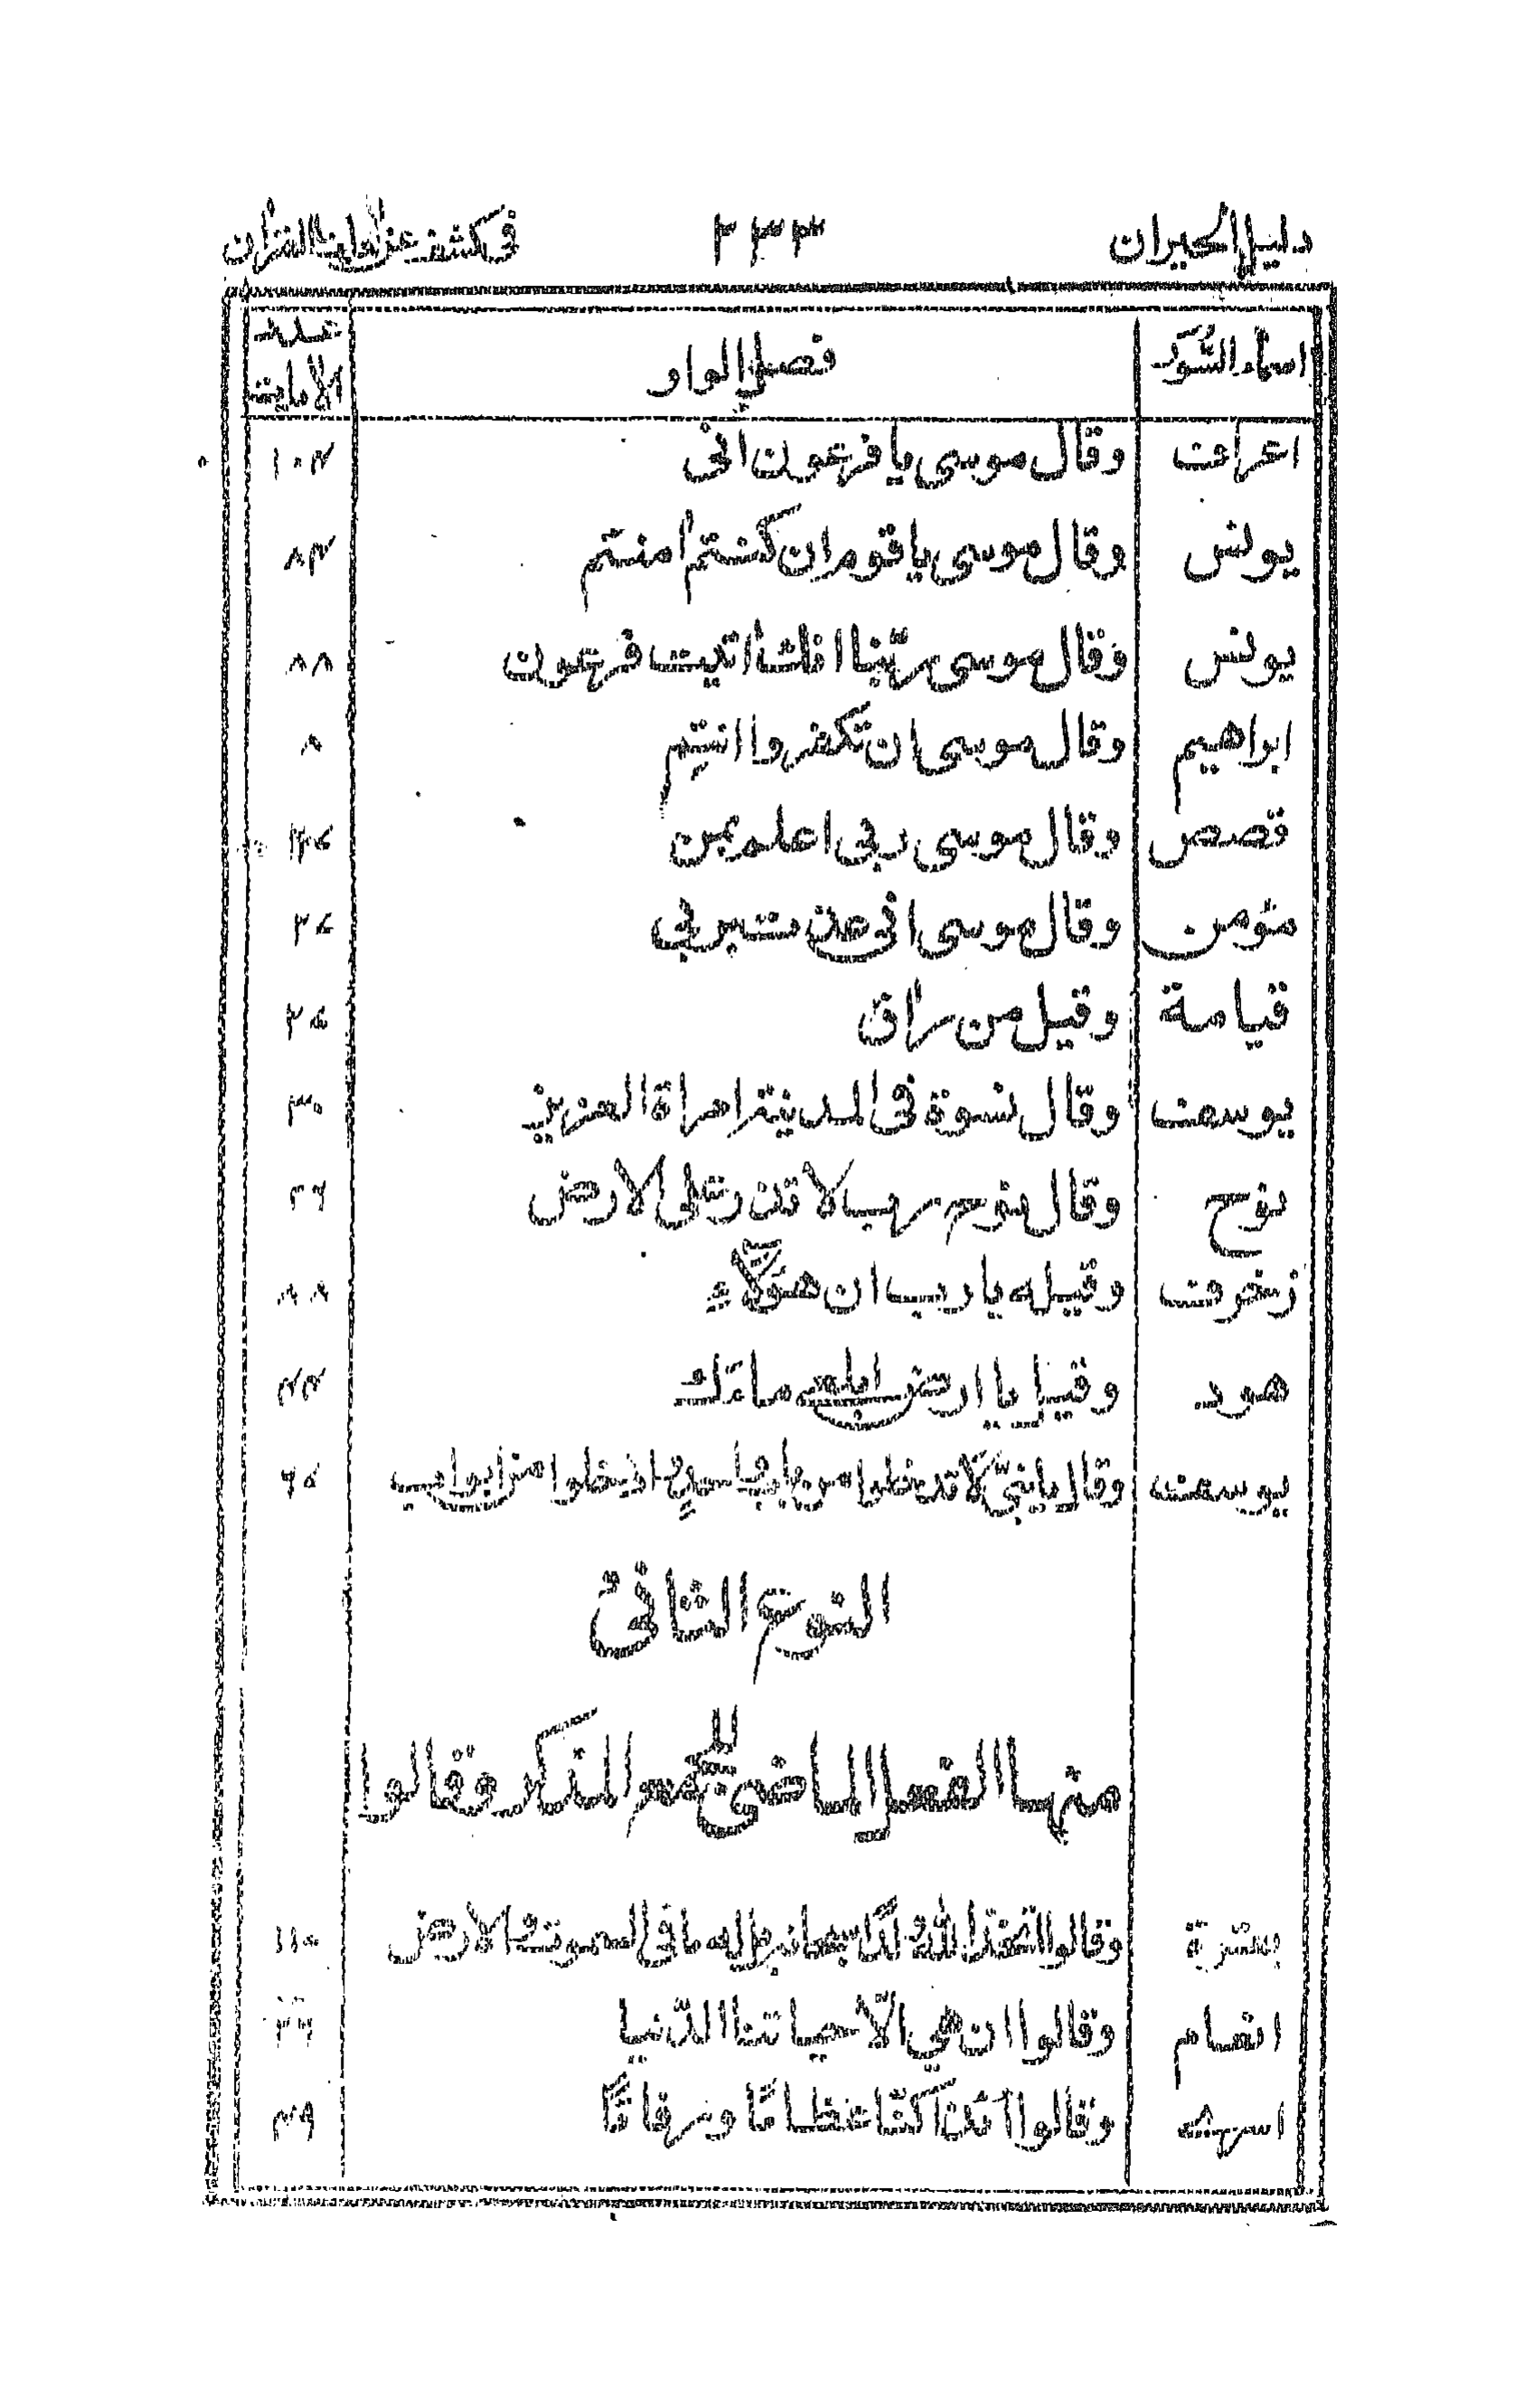 دليل الحيران ٢٣٣ في كشف عن آيات القرآن
اسماء السور فصل الواو عدد الايات
اعراف وقال موسى يا فرعون انى ١٠٣
يونس وقال موسى يا قوم ان كنتم آمنتم ٨٣
يونس وقال موسى ربّنا انك اتيت فرعون ٨٨
ابراهيم وقال موسى ان تكفروا انتم ٨
قصص وقال موسى ربى اعلم بمن
مؤمن وقال موسى انى عذت بربى ٢٧
قيامة وقيل من راق ٢٧
يوسف وقال نسوة فى المدينة امراة العزيز ٣٠
نوح وقال نوح رب لا تذر على الارض ٢٦
زخرف وقيله يا رب ان هؤلآء ٨٨
هود وقيل يا ارض ابلعى مآءك ٤٤
يوسف وقال يا بنىّ لا تدخلوا من باب واحدٍ وادخلوا من ابواب
النوع الثانى
منها الفعل الماضى لجمع المذكر وقالوا
بقرة وقالوا اتخذ الله ولدًا سبحانه بل له ما فى السموت والارض ١١٠
انعام وقالوا ان هي الّا حياتنا الدّنيا ٢٩
اسرى وقالوا آئذا كنّا عظامًا ورفاتًا ٤٩